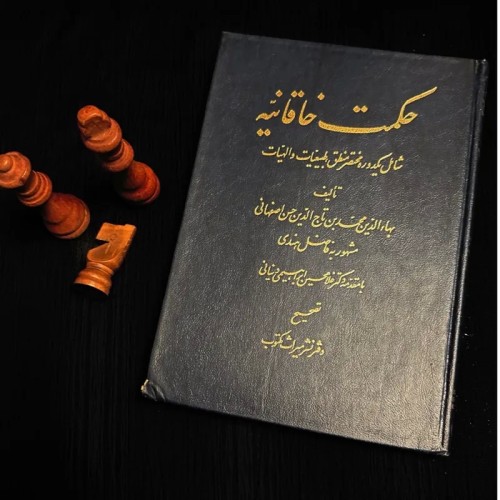 حکمت خاقانیه
شامل یکدوره مختصر منطق، طبیعیات و الهیات
تألیف
بهاءالدین محمد بن تاج الدین حسن اصفهانی
مشهور به فاضل هندی
با مقدمه دکتر غلامحسین ابراهیمی دینانی
تصحیح
دفتر نشر میراث مکتوب